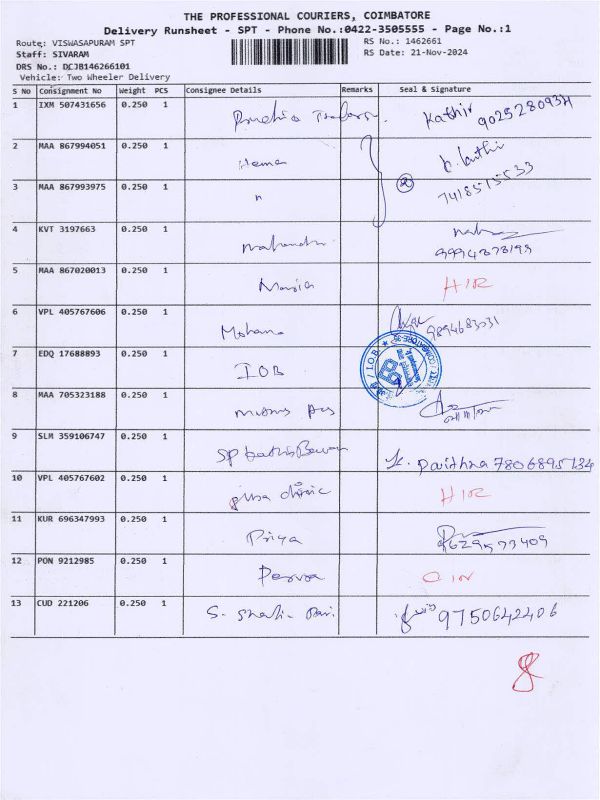 THE PROFESSIONAL COURIERS, COIMBATORE
Delivery Runsheet - SPT - Phone No.:0422-3505555 - Page No.:1
Route: VISWASAPURAM SPT
RS No.: 1462661
Staff: SIVARAM
RS Date: 21-Nov-2024
DRS No.: DCJB146266101
Vehicle: Two Wheeler Delivery
S No Consignment No Weight PCS Consignee Details Remarks Seal & Signature
1 IXM 507431656 0.250 1 Kathir 9025280934
2 MAA 867994051 0.250 1 Hema
3 MAA 867993975 0.250 1 " 2 7418515533
4 KVT 3197663 0.250 1 9994373195
5 MAA 867020013 0.250 1
6 VPL 405767606 0.250 1 Mohana 9894683031
7 EDQ 17688893 0.250 1 IOB
8 MAA 705323188 0.250 1
9 SLM 359106747 0.250 1 K. Pavithra 7806895134
10 VPL 405767602 0.250 1 clinic
11 KUR 696347993 0.250 1 Priya 8629573409
12 PON 9212985 0.250 1
13 CUD 221206 0.250 1 9750642406
8